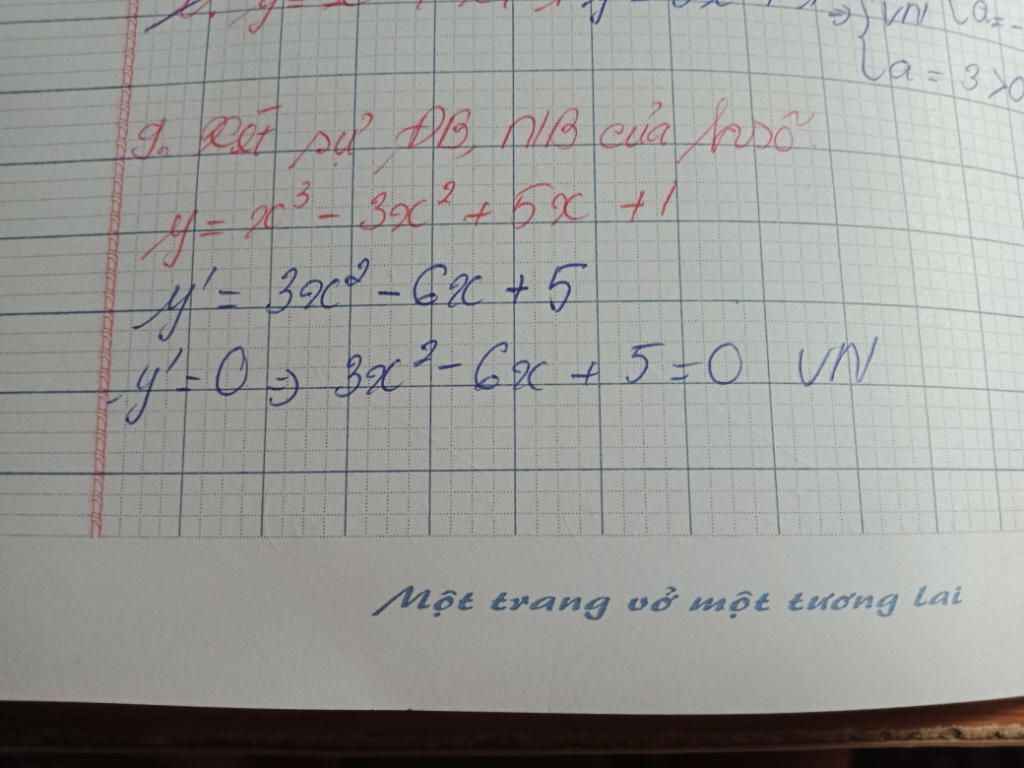 ⇒ { VN
a = 3 > 0
9. Xét sự ĐB, N/B của h/số
y = x³ - 3x² + 5x + 1
y' = 3x² - 6x + 5
y' = 0 ⇒ 3x² - 6x + 5 = 0 VN
Một trang vở một tương lai